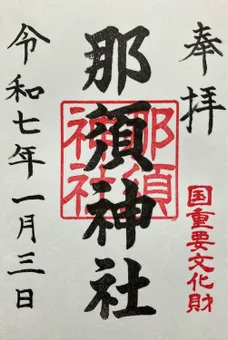 奉拝
国重要文化財
那須神社
那須神社
令和七年一月三日